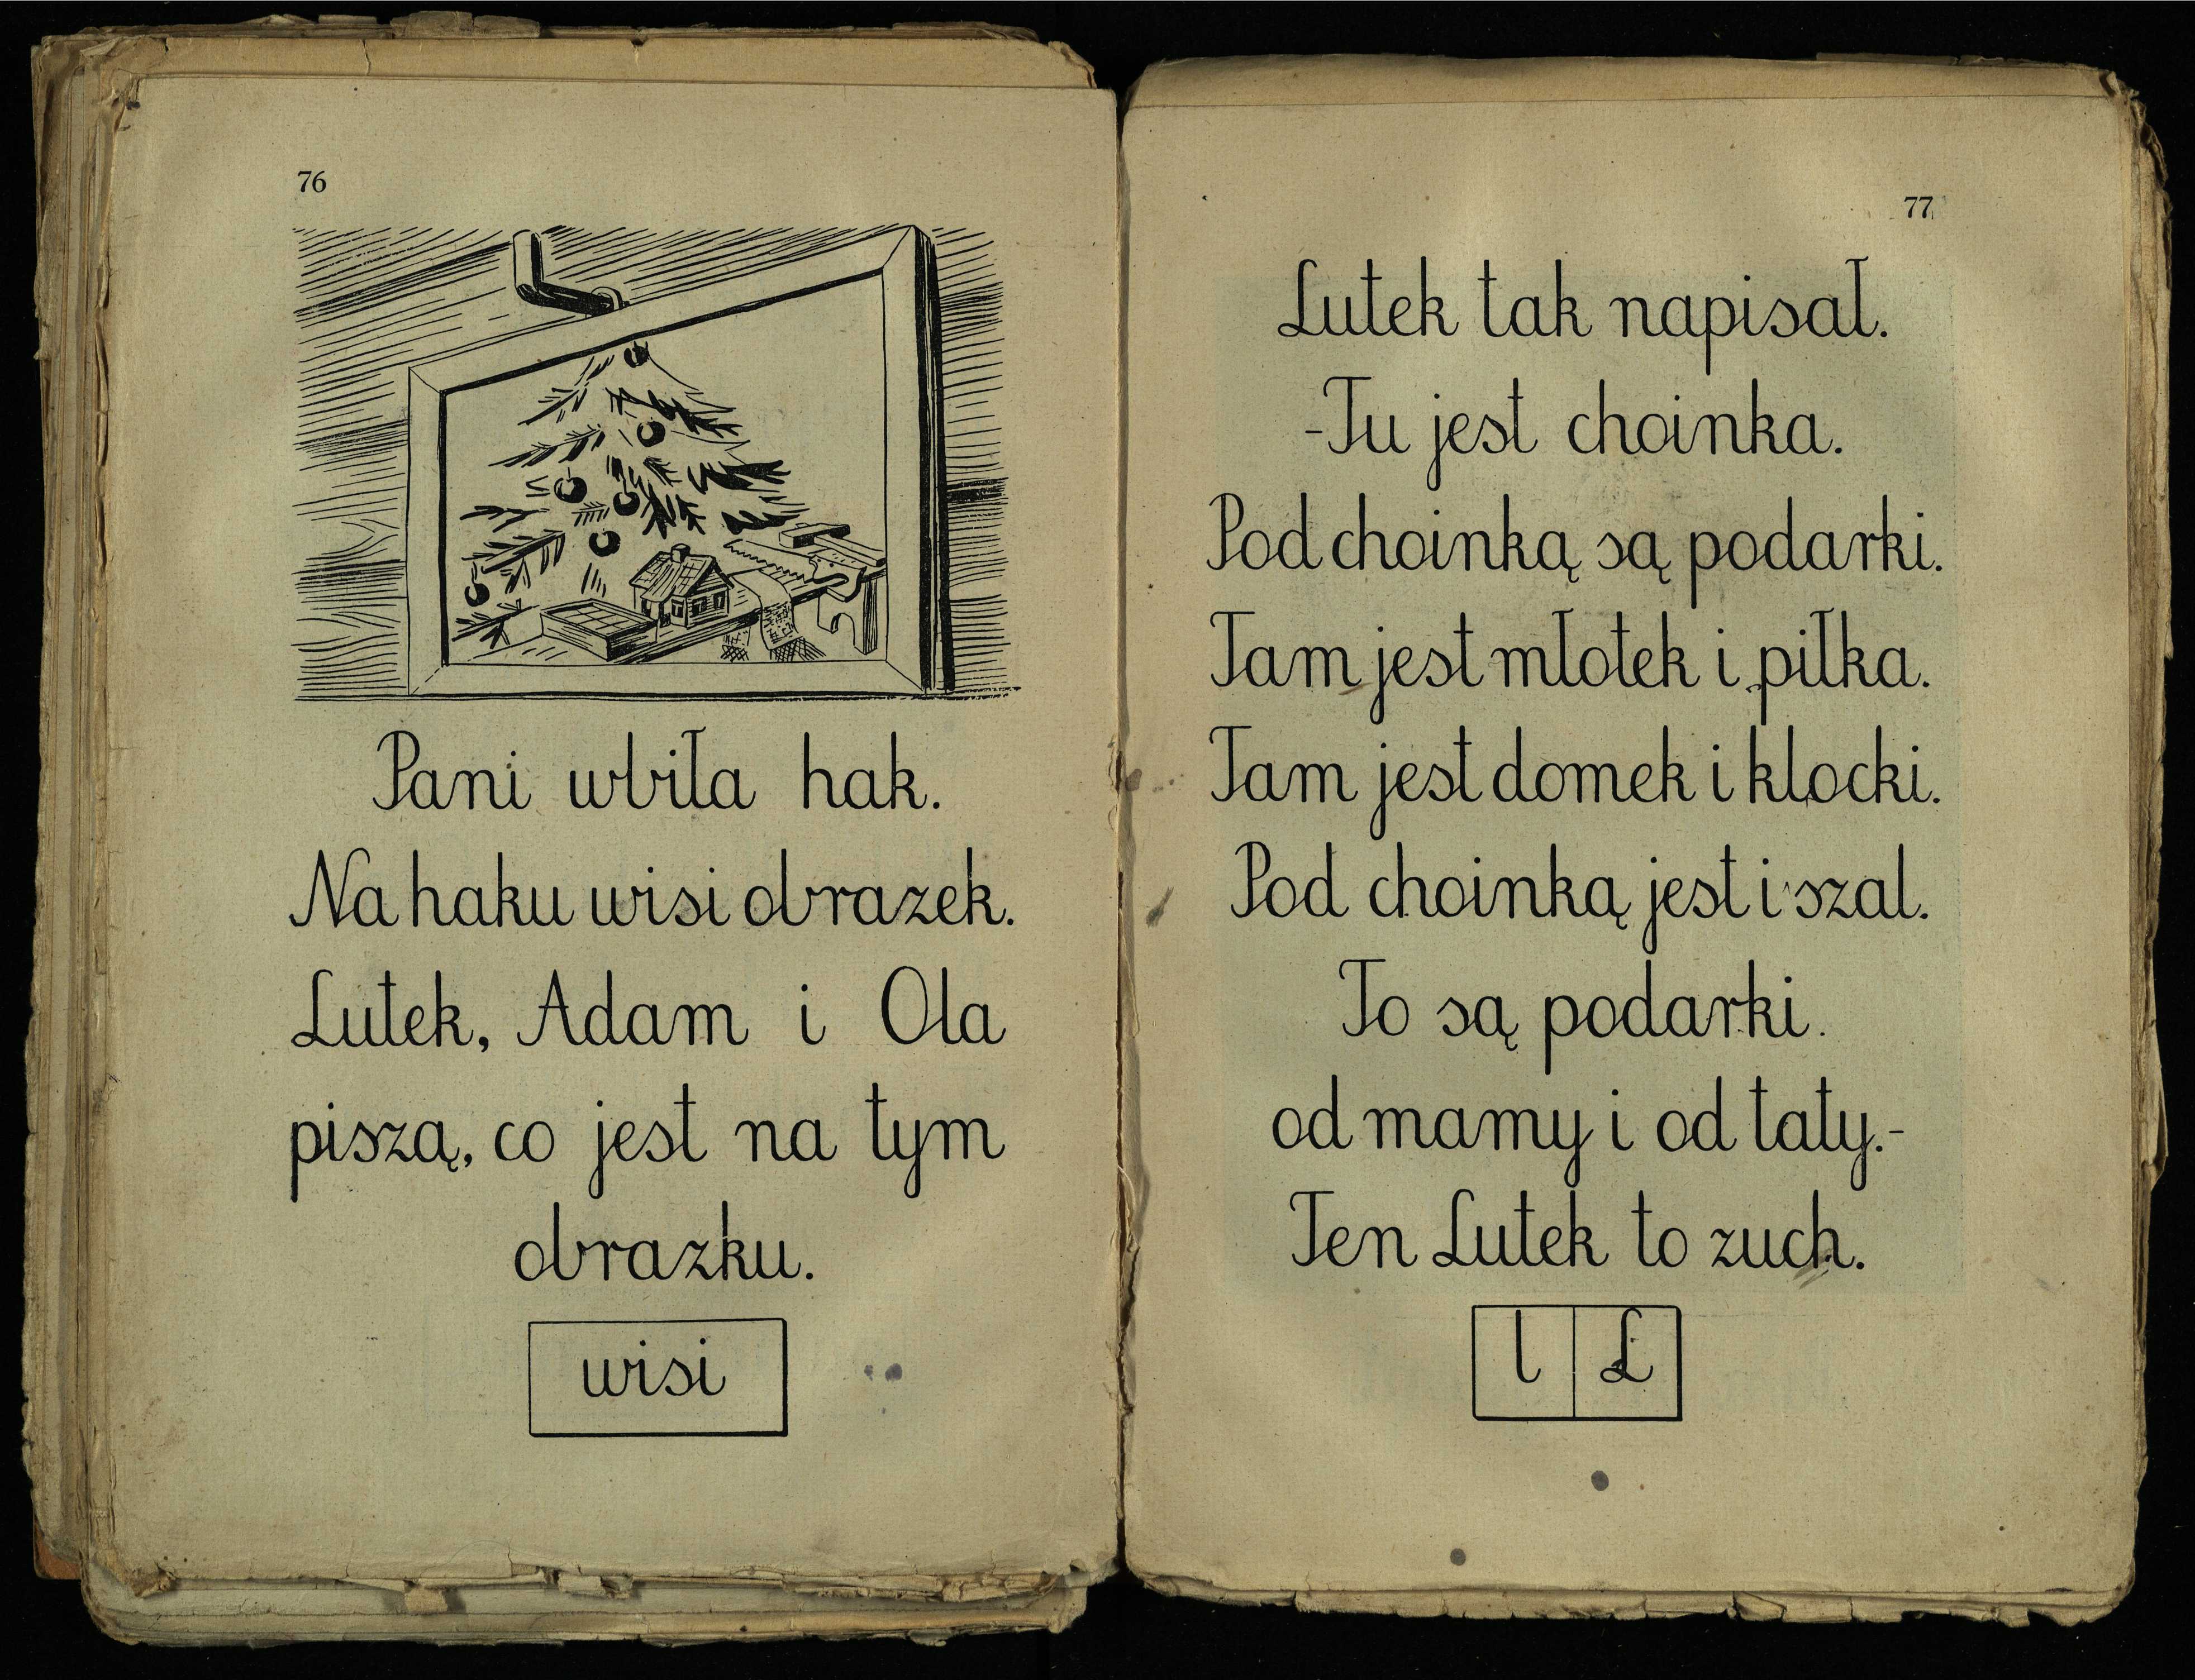 76
Pani wbiła hak.
Na haku wisi obrazek.
Lutek, Adam i Ola
piszą, co jest na tym
obrazku.
wisi
77
Lutek tak napisał.
-Tu jest choinka.
Pod choinką są podarki.
Tam jest młotek i piłka.
Tam jest domek i klocki.
Pod choinką jest i szal.
To są podarki.
od mamy i od taty.-
Ten Lutek to zuch.
l L